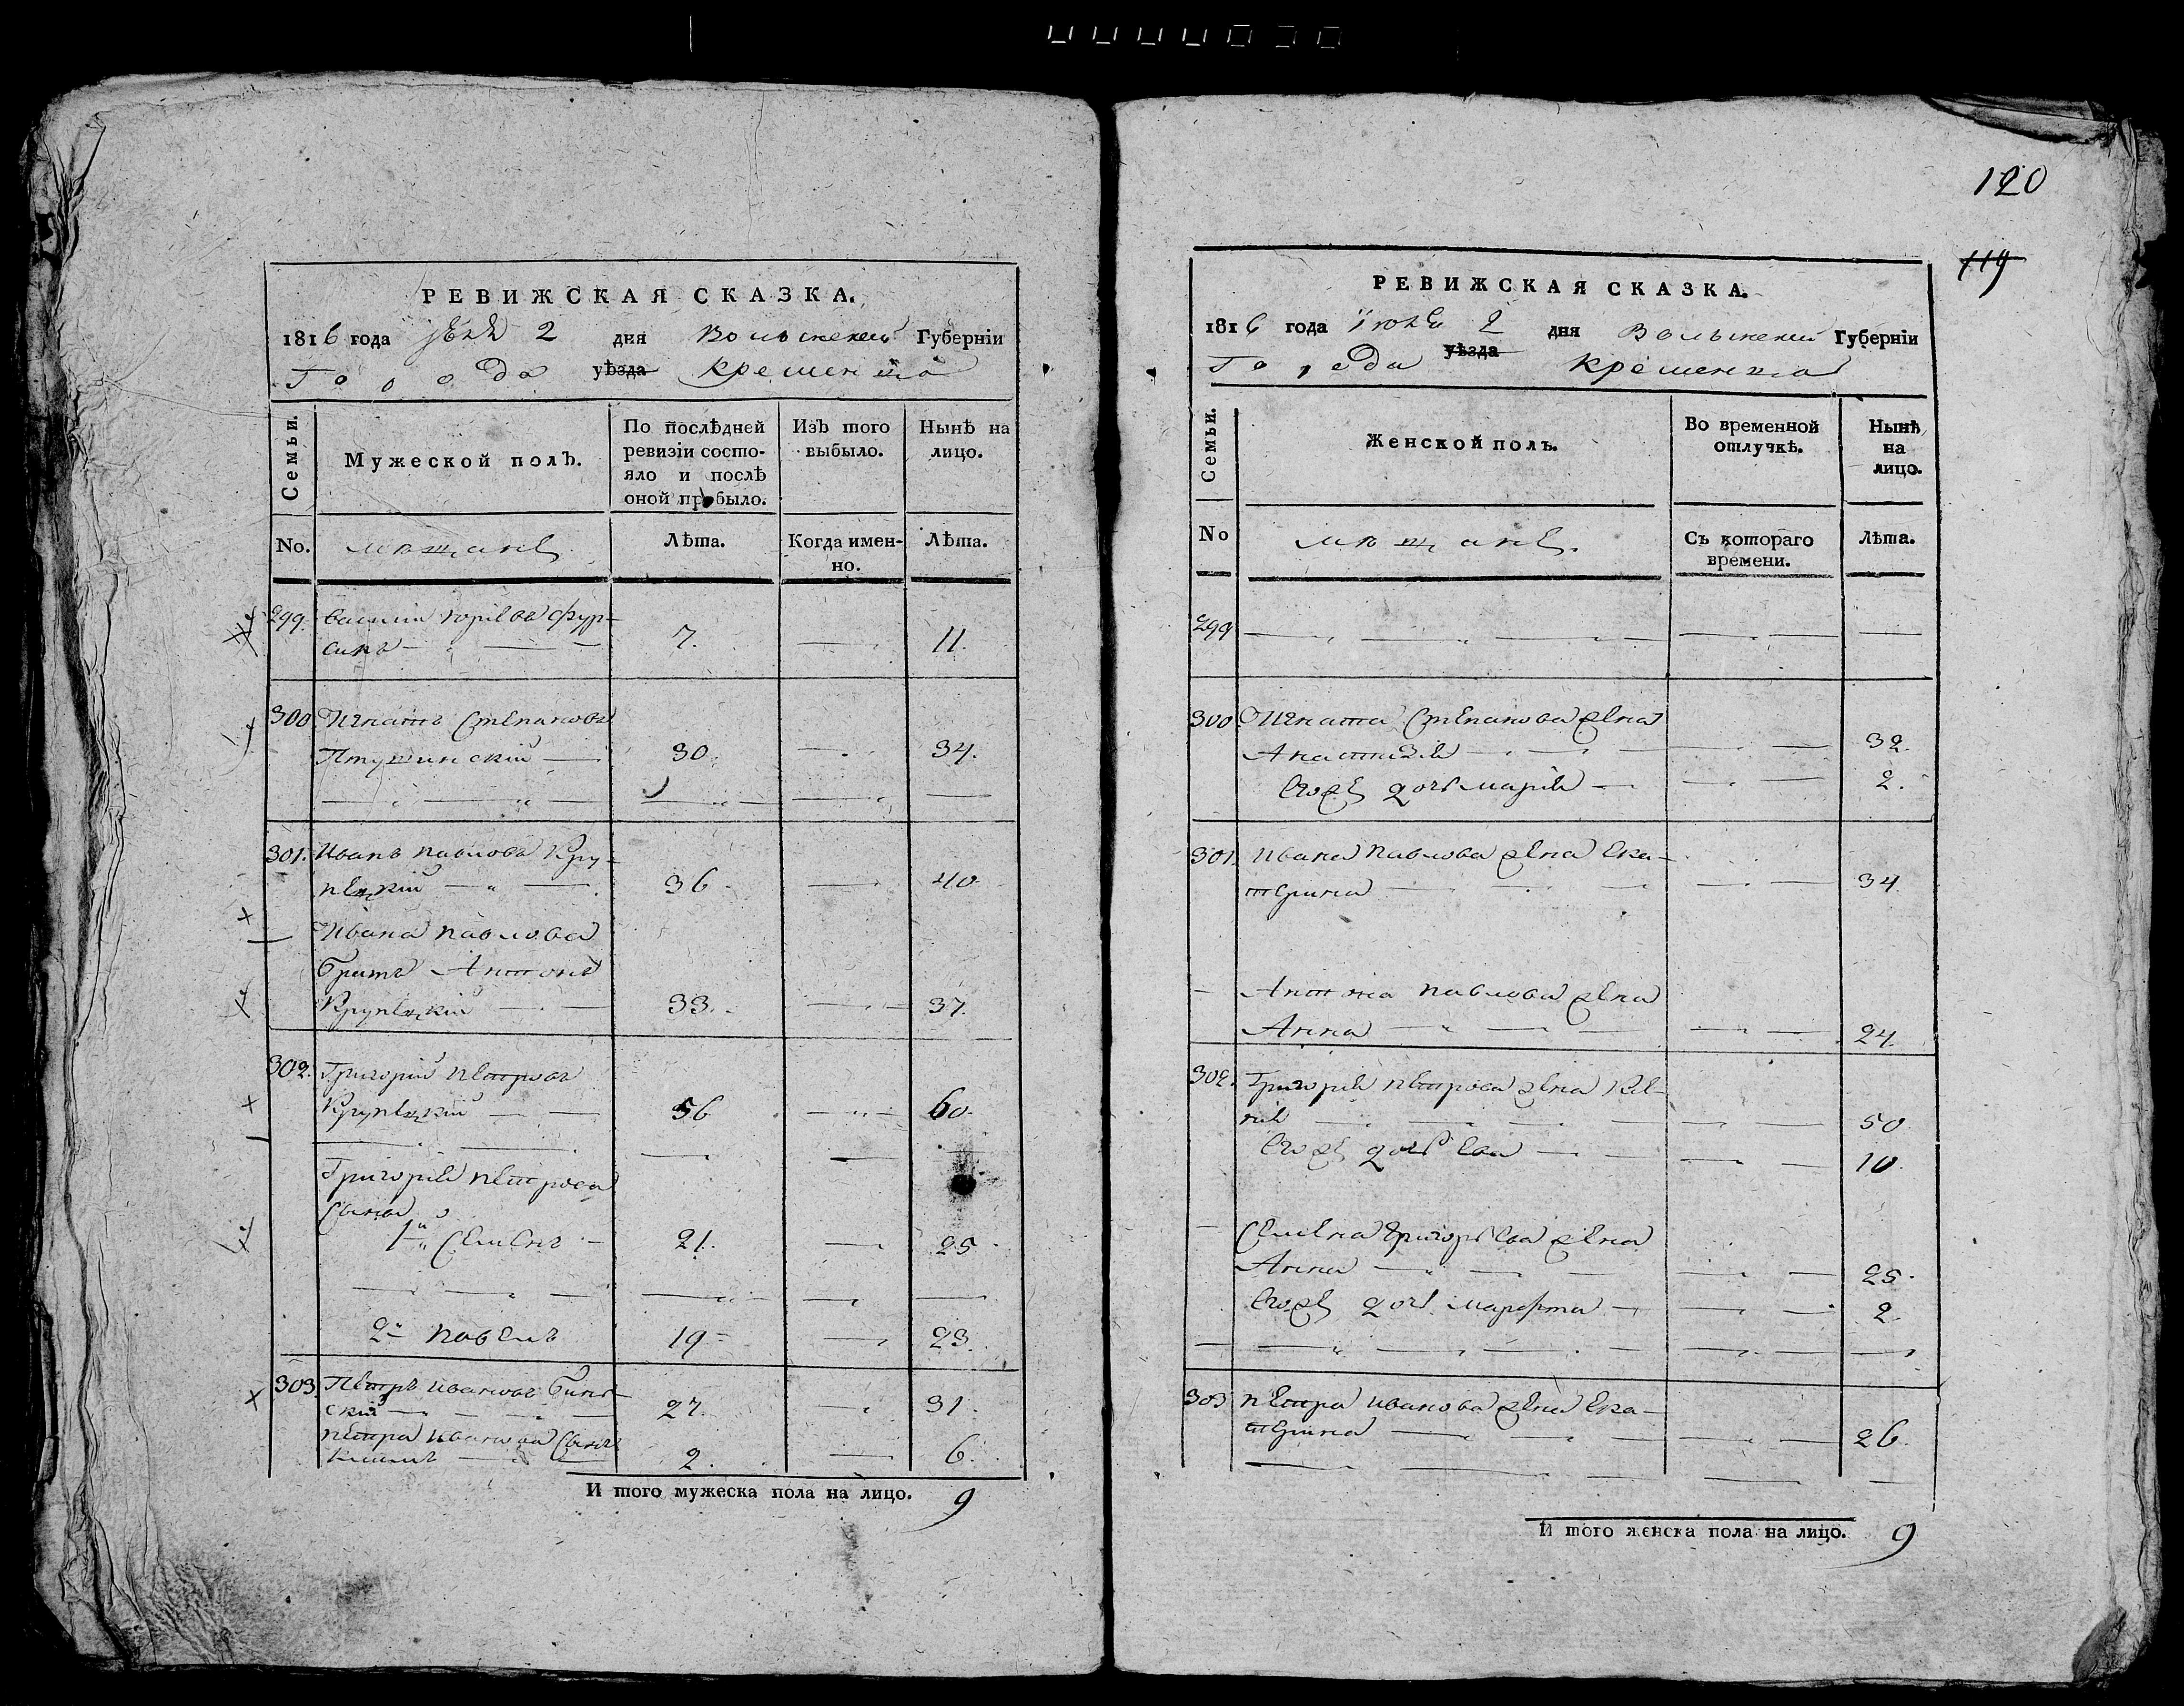 120
119
РЕВИЖСКАЯ СКАЗКА.
1816 года 2 дня Волынской Губерніи
Города уѣзда Кременца
Семьи.
Мужеской полъ.
По послѣдней ревизіи состо-
яло и послѣ оной прибыло.
Изъ того выбыло.
Нынѣ на лицо.
No.
мѣщане
Лѣта.
Когда имен-
но.
Лѣта.
299. Василій Юріевъ Фур-
сикъ 7. 11.
300 Игнатъ Степановъ
Птушинскій 30. 34.
301. Иванъ Павловъ Кру-
пецкій 36. 40.
Ивана Павлова
братъ Антонъ
Крупецкій 33. 37.
302. Григорій Петровъ
Крупецкій 56 60.
Григорія Петрова
сына
1й Семенъ 21. 25
2й Павелъ 19 23.
303. Петръ Ивановъ
скій 27. 31.
Петра Иванова сынъ
2. 6.
И того мужеска пола на лицо. 9
РЕВИЖСКАЯ СКАЗКА.
1816 года Іюня 2 дня Волынской Губерніи
Города уѣзда Кременца
Семьи.
Женской полъ.
Во временной
отлучкѣ.
Нынѣ
на
лицо.
No
мѣщане.
Съ котораго
времени.
Лѣта.
299
300 Игната Степанова жена
Анастазія 32.
Егожъ дочь Марія 2.
301. Ивана Павлова жена Ека-
терина 34.
Антона Павлова жена
Анна 24.
302. Григорія Петрова жена
50.
Егожъ дочь Ева 10.
Семена Григорьева жена
Анна 25.
Егожъ дочь Марфта 2.
303 Петра Иванова жена Ека-
терина 26.
И того женска пола на лицо. 9